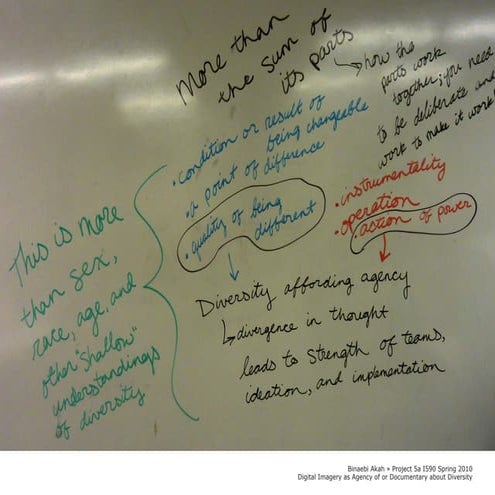 More than
the sum of
its parts
how the
parts work
together; you need
to be deliberate and
work to make it work!
• condition or result of
being changeable
• a point of difference
• quality of being
different
• instrumentality
• operation
• action of power
This is more
than sex,
race, age, and
other "shallow"
understandings
of diversity
Diversity affording agency
divergence in thought
leads to strength of teams,
ideation, and implementation
Binaebi Akah • Project 5a I590 Spring 2010
Digital Imagery as Agency of or Documentary about Diversity